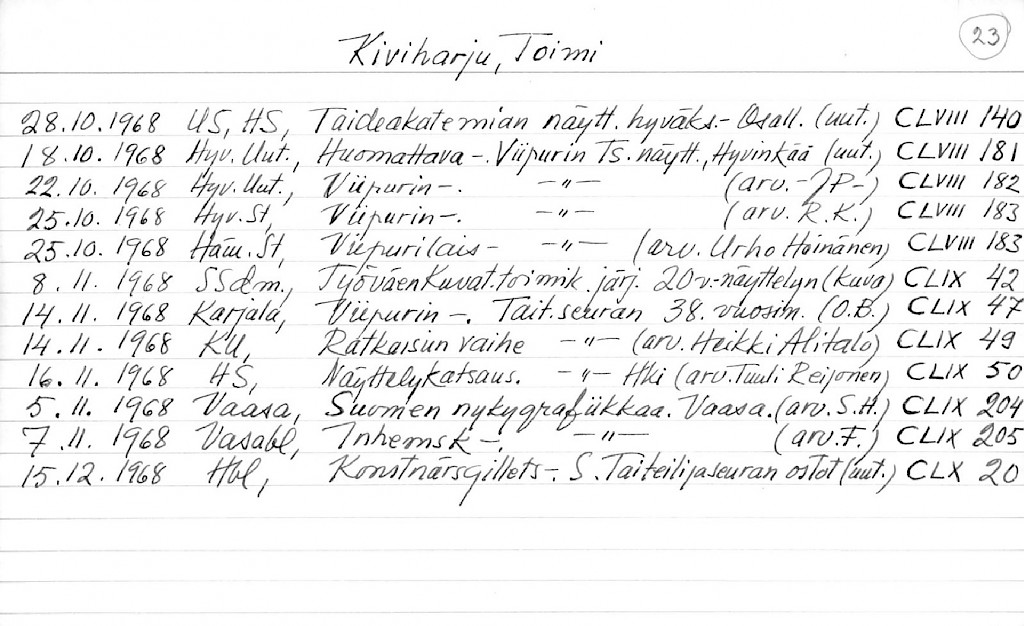 23
Kiviharju, Toimi
28.10.1968 US, HS, Taideakatemian näytt. hyväks.- Osall. (uut.) CLVIII 140
18.10.1968 Hyv. Uut., Huomattava -. Viipurin Ts. näytt., Hyvinkää (uut.) CLVIII 181
22.10.1968 Hyv. Uut., Viipurin -. -"- (arv. -JP-) CLVIII 182
25.10.1968 Hyv. St, Viipurin -. -"- (arv. R.K.) CLVIII 183
25.10.1968 Häm. St, Viipurilais - -"- (arv. Urho Heinänen) CLVIII 183
8.11.1968 SSdm., Työväen Kuvat. toimik. järj. 20 v:näyttelyn (kuva) CLIX 42
14.11.1968 Karjala, Viipurin -. Tait. seuran 38. vuosin. (O.B.) CLIX 47
14.11.1968 KU, Ratkaisun vaihe -"- (arv. Heikki Alitalo) CLIX 49
16.11.1968 HS, Näyttelykatsaus. -"- Hki (arv. Tuuli Reijonen) CLIX 50
5.11.1968 Vaasa, Suomen nykygrafiikkaa. Vaasa. (arv. S.H.) CLIX 204
7.11.1968 Vasabl, Inhemsk -. -"- (arv. F.) CLIX 205
15.12.1968 Hbl, Konstnärsgillets -. S. Taiteilijaseuran ostot (uut.) CLX 20